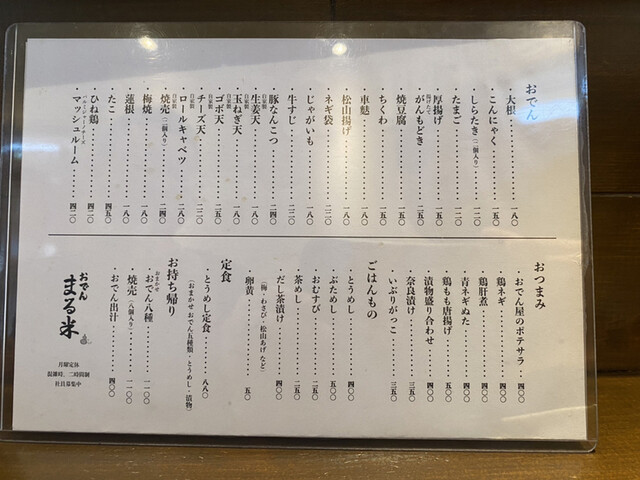 おでん
・大根・・・・・・・・・・一八〇
・こんにゃく・・・・・・・一五〇
・しらたき(二個入り)・・・・一二〇
・たまご・・・・・・・・・一二〇
・厚揚げ・・・・・・・・・二五〇
・がんもどき・・・・・・・
・焼豆腐・・・・・・・・・一五〇
・ちくわ・・・・・・・・・一五〇
・車麩・・・・・・・・・・一八〇
・松山揚げ・・・・・・・・一八〇
・ネギ袋・・・・・・・・・二二〇
・じゃがいも・・・・・・・一八〇
・牛すじ・・・・・・・・・二二〇
・豚なんこつ・・・・・・・二四〇
自家製
・生姜天・・・・・・・・・一八〇
自家製
・玉ねぎ天・・・・・・・・一八〇
自家製
・ゴボ天・・・・・・・・・二五〇
自家製
・チーズ天・・・・・・・・二二〇
・ロールキャベツ・・・・・二八〇
自家製
・焼売(二個入り)・・・・・・二八〇
・梅焼・・・・・・・・・・一八〇
・蓮根・・・・・・・・・・一八〇
・たこ・・・・・・・・・・四五〇
・ひね鶏・・・・・・・・・四二〇
・マッシュルーム・・・・・四二〇
おつまみ
・おでん屋のポテサラ・・四〇〇
・鶏ネギ・・・・・・・・四〇〇
・鶏肝煮・・・・・・・・四〇〇
・青ネギぬた・・・・・・四〇〇
・鶏もも唐揚げ・・・・・五〇〇
・漬物盛り合わせ・・・・四〇〇
・奈良漬け・・・・・・・三五〇
・いぶりがっこ・・・・・三五〇
ごはんもの
・とうめし・・・・・・・二〇〇
・ぶためし・・・・・・・五〇〇
・おむすび・・・・・・・二五〇
・茶めし・・・・・・・・二五〇
・だし茶漬け・・・・・・四〇〇
(梅・わさび・松山あげ など)
・卵黄・・・・・・・・・五〇
定食
・とうめし定食・・・・・八八〇
(おまかせ おでん五種類・とうめし・漬物)
お持ち帰り
おまかせ
・おでん八種・・・・・・一一〇〇
・焼売(八個入り)・・・・・一一〇〇
・おでん出汁・・・・・・四〇〇
おでん
まる米
月曜定休
混雑時、二時間制
社員募集中